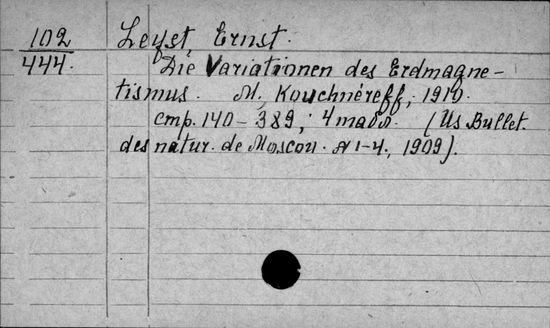 102
444.
Leyst, Ernst.
Die Variationen des Erdmagne-
tismus. M, Kouchnéreff, 1910.
стр. 140-389; 4 табл. (Из Bullet.
des natur. de Moscou. № 1-4, 1909).